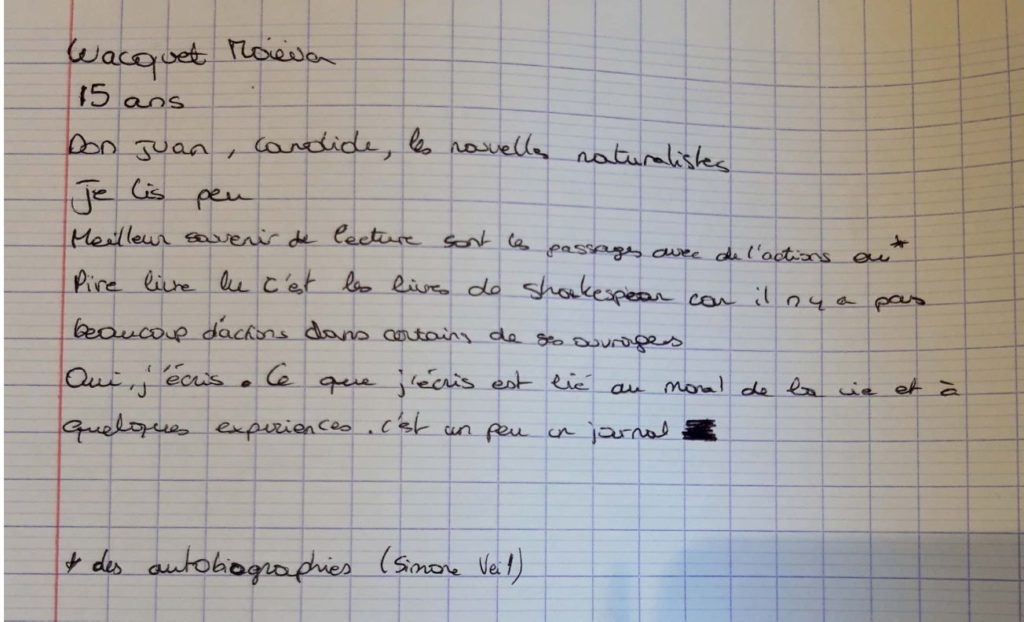 Wacquet Maïeva
15 ans
Don Juan, Candide, les nouvelles naturalistes
Je lis peu
Meilleur souvenir de lecture sont les passages avec de l'actions ou*
Pire livre lu c'est les livres de Shakespear car il n'y a pas
beaucoup d'actions dans certains de ses ouvrages
Oui, j'écris. Ce que j'écris est lié au moral de la vie et à
quelques experiences. c'est un peu un journal
* des autobiographies (Simone Veil)